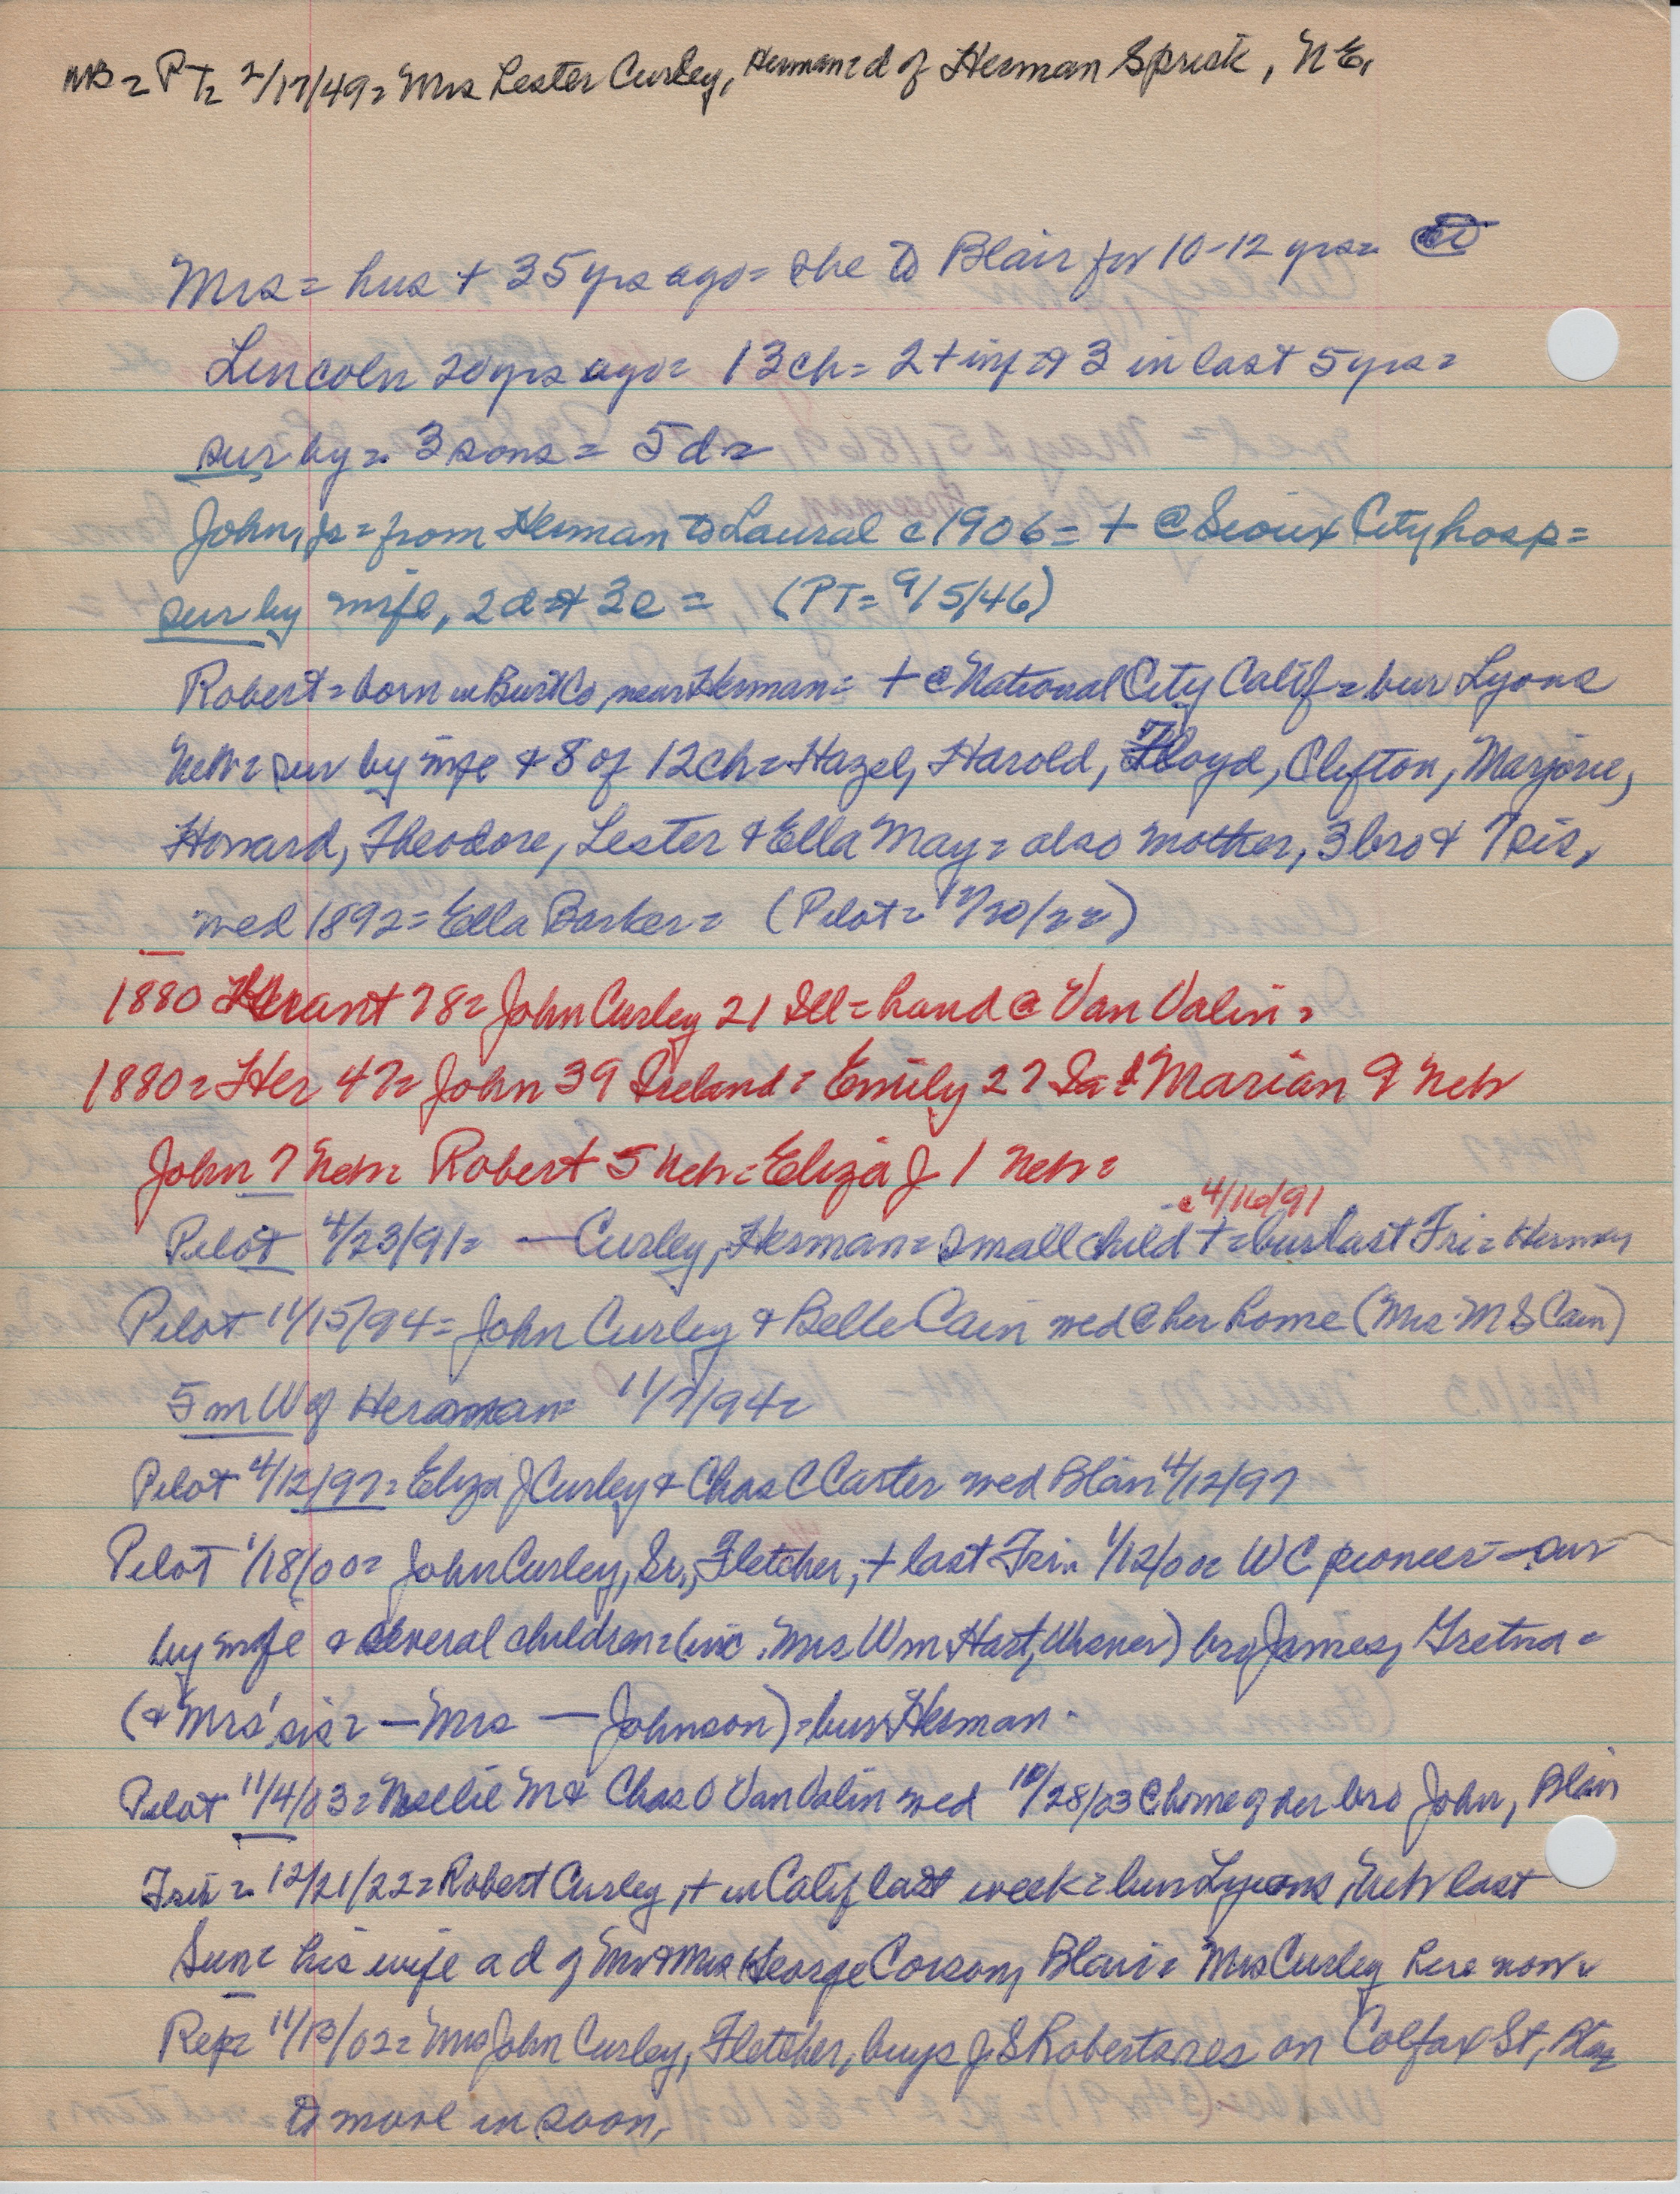 NB = PT = 2/17/49 = Mrs Lester Curley, Herman = d of Herman Sprick, NE,
Mrs = hus + 35 yrs ago = she to Blair for 10-12 yrs = to
Lincoln 20 yrs ago = 13 ch = 2 + inf & 3 in last 5 yrs =
sur by = 3 sons = 5 d =
John, Jr = from Herman to Laural c 1906 = + @ Sioux City hosp =
sur by wife, 2 d & 3 = (PT = 9/5/46)
Robert = born in Burt Co, near Herman = + @ National City Calif = bur Lyons
Neb = sur by wife & 8 of 12 ch = Hazel, Harold, Floyd, Clifton, Marjorie,
Howard, Theodore, Lester & Ella May = also mother, 3 bro & 7 sis,
wed 1892 = Ella Barker = (Pilot = 12/20/22)
1880 Herant 78 = John Curley 21 Ill = hand @ Van Valin =
1880 = Her 47 = John 39 Ireland = Emily 27 Ia = Marian 9 Neb
John 7 Neb = Robert 5 Neb = Eliza J 1 Neb =
c 4/16/91
Pilot 4/23/91 = — Curley, Herman = small child + = bur last Fri = Herman
Pilot 11/15/94 = John Curley & Belle Cain wed @ her home (Mrs M S Cain)
5 m W of Herman = 11/7/94 =
Pilot 4/12/97 = Eliza J Curley & Chas C Carter wed Blair 4/12/97
Pilot 1/18/00 = John Curley, Sr., Fletcher, + last Fri = 1/12/00 = WC pioneer — sur
by wife & several children = (inc. Mrs Wm Hart, Wisner) bro James, Gretna =
(& Mrs' sis = — Mrs — Johnson) = bur Herman -
Pilot 11/4/03 = Nellie M & Chas O Van Valin wed 10/28/03 @ home of her bro John, Blair
Trib = 12/21/22 = Robert Curley, + in Calif last week = bur Lyons, Neb last
Sun = his wife a d of Mr & Mrs George Corson, Blair = Mrs Curley here now =
Rep = 11/13/02 = Mrs John Curley, Fletcher, buys J S Roberts res on Colfax St,
to move in soon,